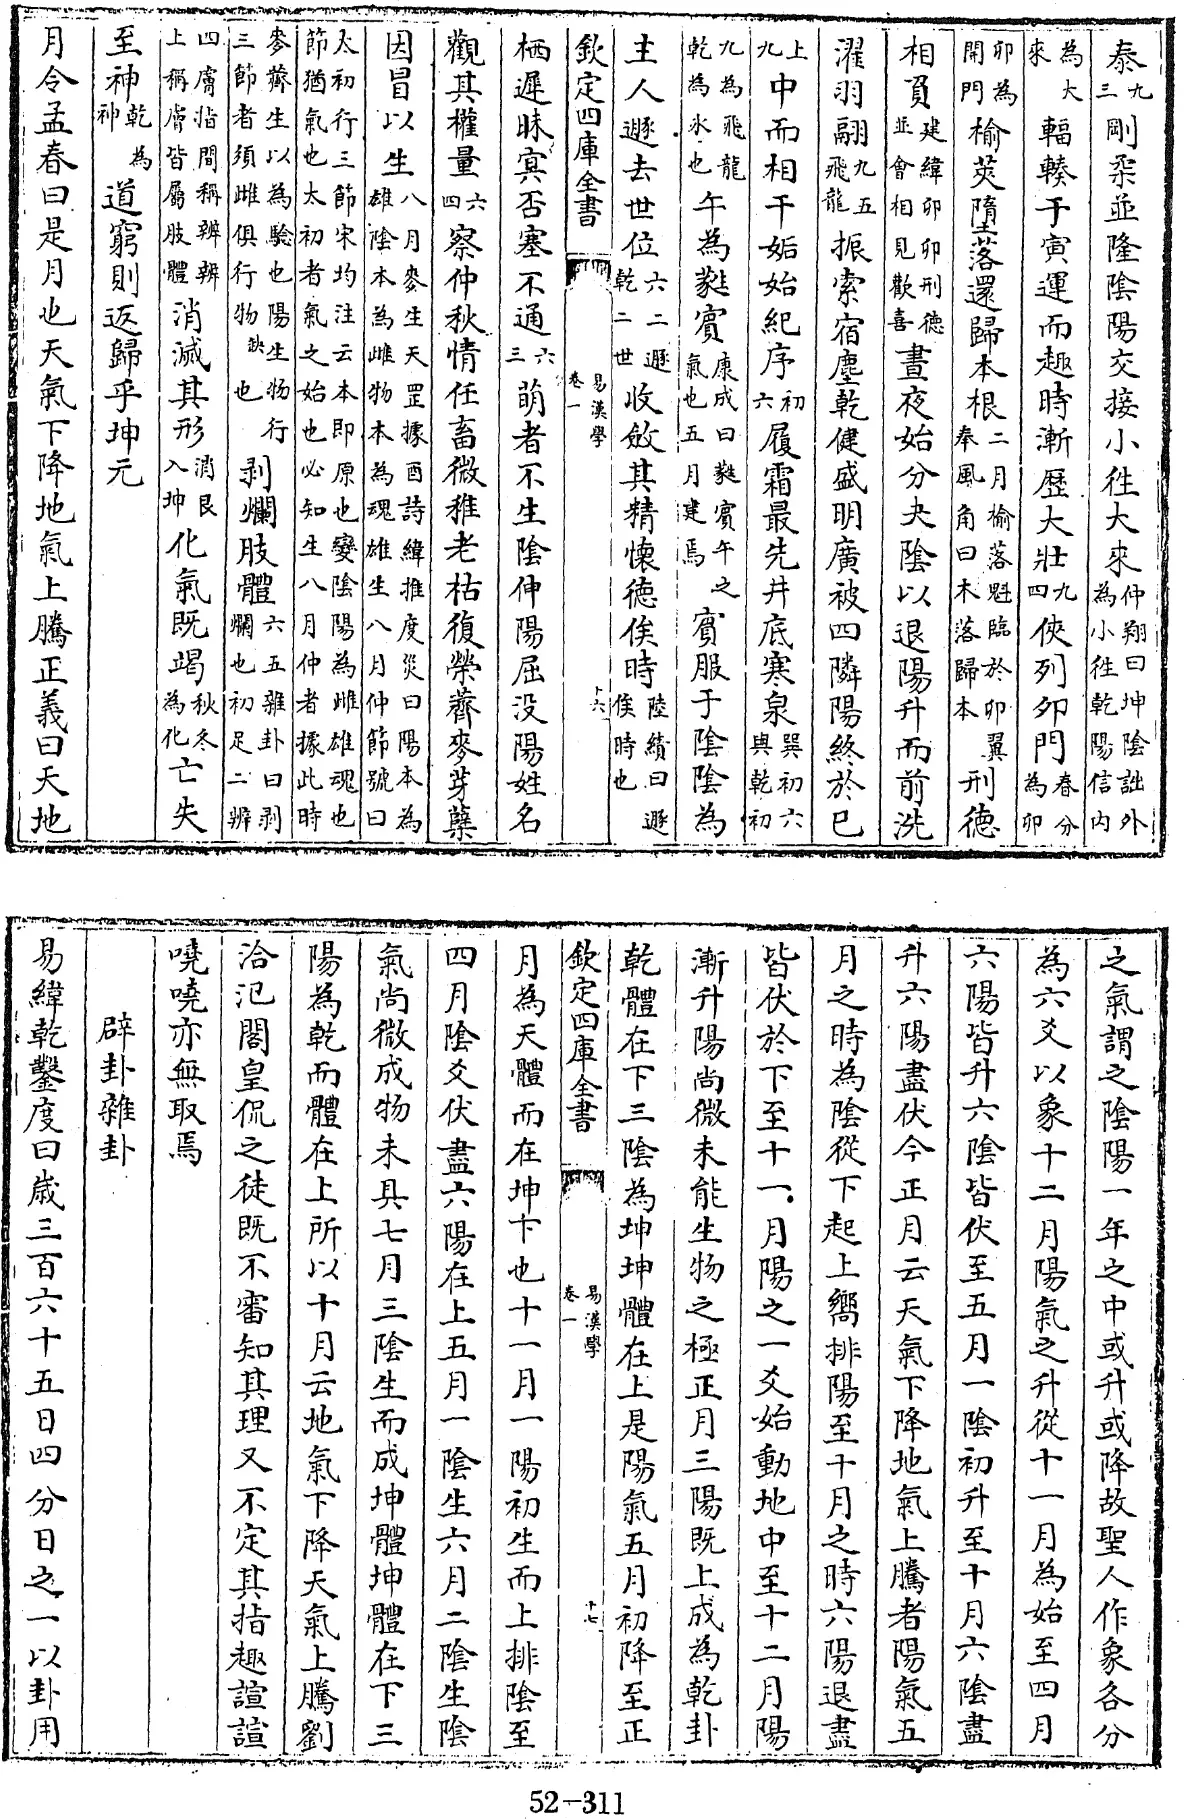 泰九三剛柔並隆陰陽交接小往大來仲翔曰坤陰詘外為小往乾陽信内
為大來輻輳于寅運而趣時漸歷大壯九四俠列卯門春分為卯
卯為開門榆莢墮落還歸本根二月榆落魁臨於卯翼奉風角曰木落歸本刑德
相負建緯卯卯刑德並會相見歡喜晝夜始分夬陰以退陽升而前洗
濯羽翮九五飛龍振索宿塵乾健盛明廣被四隣陽終於巳
上九中而相干姤始紀序初六履霜最先井底寒泉巽初六與乾初
九為飛龍乾為氷也午為蕤賓康成曰蕤賓午之氣也五月建焉賓服于陰陰為
主人遯去世位六二遯乾二世收斂其精懷德俟時陸績曰遯俟時也
欽定四庫全書 易漢學 卷一 十六
栖遲昧冥否塞不通六三萌者不生陰伸陽屈没陽姓名
觀其權量六四察仲秋情任畜微稚老枯復榮薺麥芽蘗
因冒以生八月麥生天罡據酉詩緯推度災曰陽本為雄陰本為雌物本為魂雄生八月仲節號曰
太初行三節宋均注云本即原也變陰陽為雌雄魂也節猶氣也太初者氣之始也必知生八月仲者據此時
麥薺生以為驗也陽生物行三節者須雌俱行物缺也剥爛肢體六五雜卦曰剥爛也初足二辨
四膚指間稱辨辨上稱膚皆屬肢體消滅其形消艮入坤化氣既竭秋冬為化亡失
至神乾為神道窮則返歸乎坤元
月令孟春曰是月也天氣下降地氣上騰正義曰天地
之氣謂之陰陽一年之中或升或降故聖人作象各分
為六爻以象十二月陽氣之升從十一月為始至四月
六陽皆升六陰皆伏至五月一陰初升至十月六陰盡
升六陽盡伏今正月云天氣下降地氣上騰者陽氣五
月之時為陰從下起上嚮排陽至十月之時六陽退盡
皆伏於下至十一月陽之一爻始動地中至十二月陽
漸升陽尚微未能生物之極正月三陽既上成為乾卦
乾體在下三陰為坤坤體在上是陽氣五月初降至正
欽定四庫全書 易漢學 卷一 十七
月為天體而在坤下也十一月一陽初生而上排陰至
四月陰爻伏盡六陽在上五月一陰生六月二陰生陰
氣尚微成物未具七月三陰生而成坤體坤體在下三
陽為乾而體在上所以十月云地氣下降天氣上騰劉
洽氾閣皇侃之徒既不審知其理又不定其指趣諠諠
嘵嘵亦無取焉
辟卦雜卦
易緯乾鑿度曰歲三百六十五日四分日之一以卦用
52-311